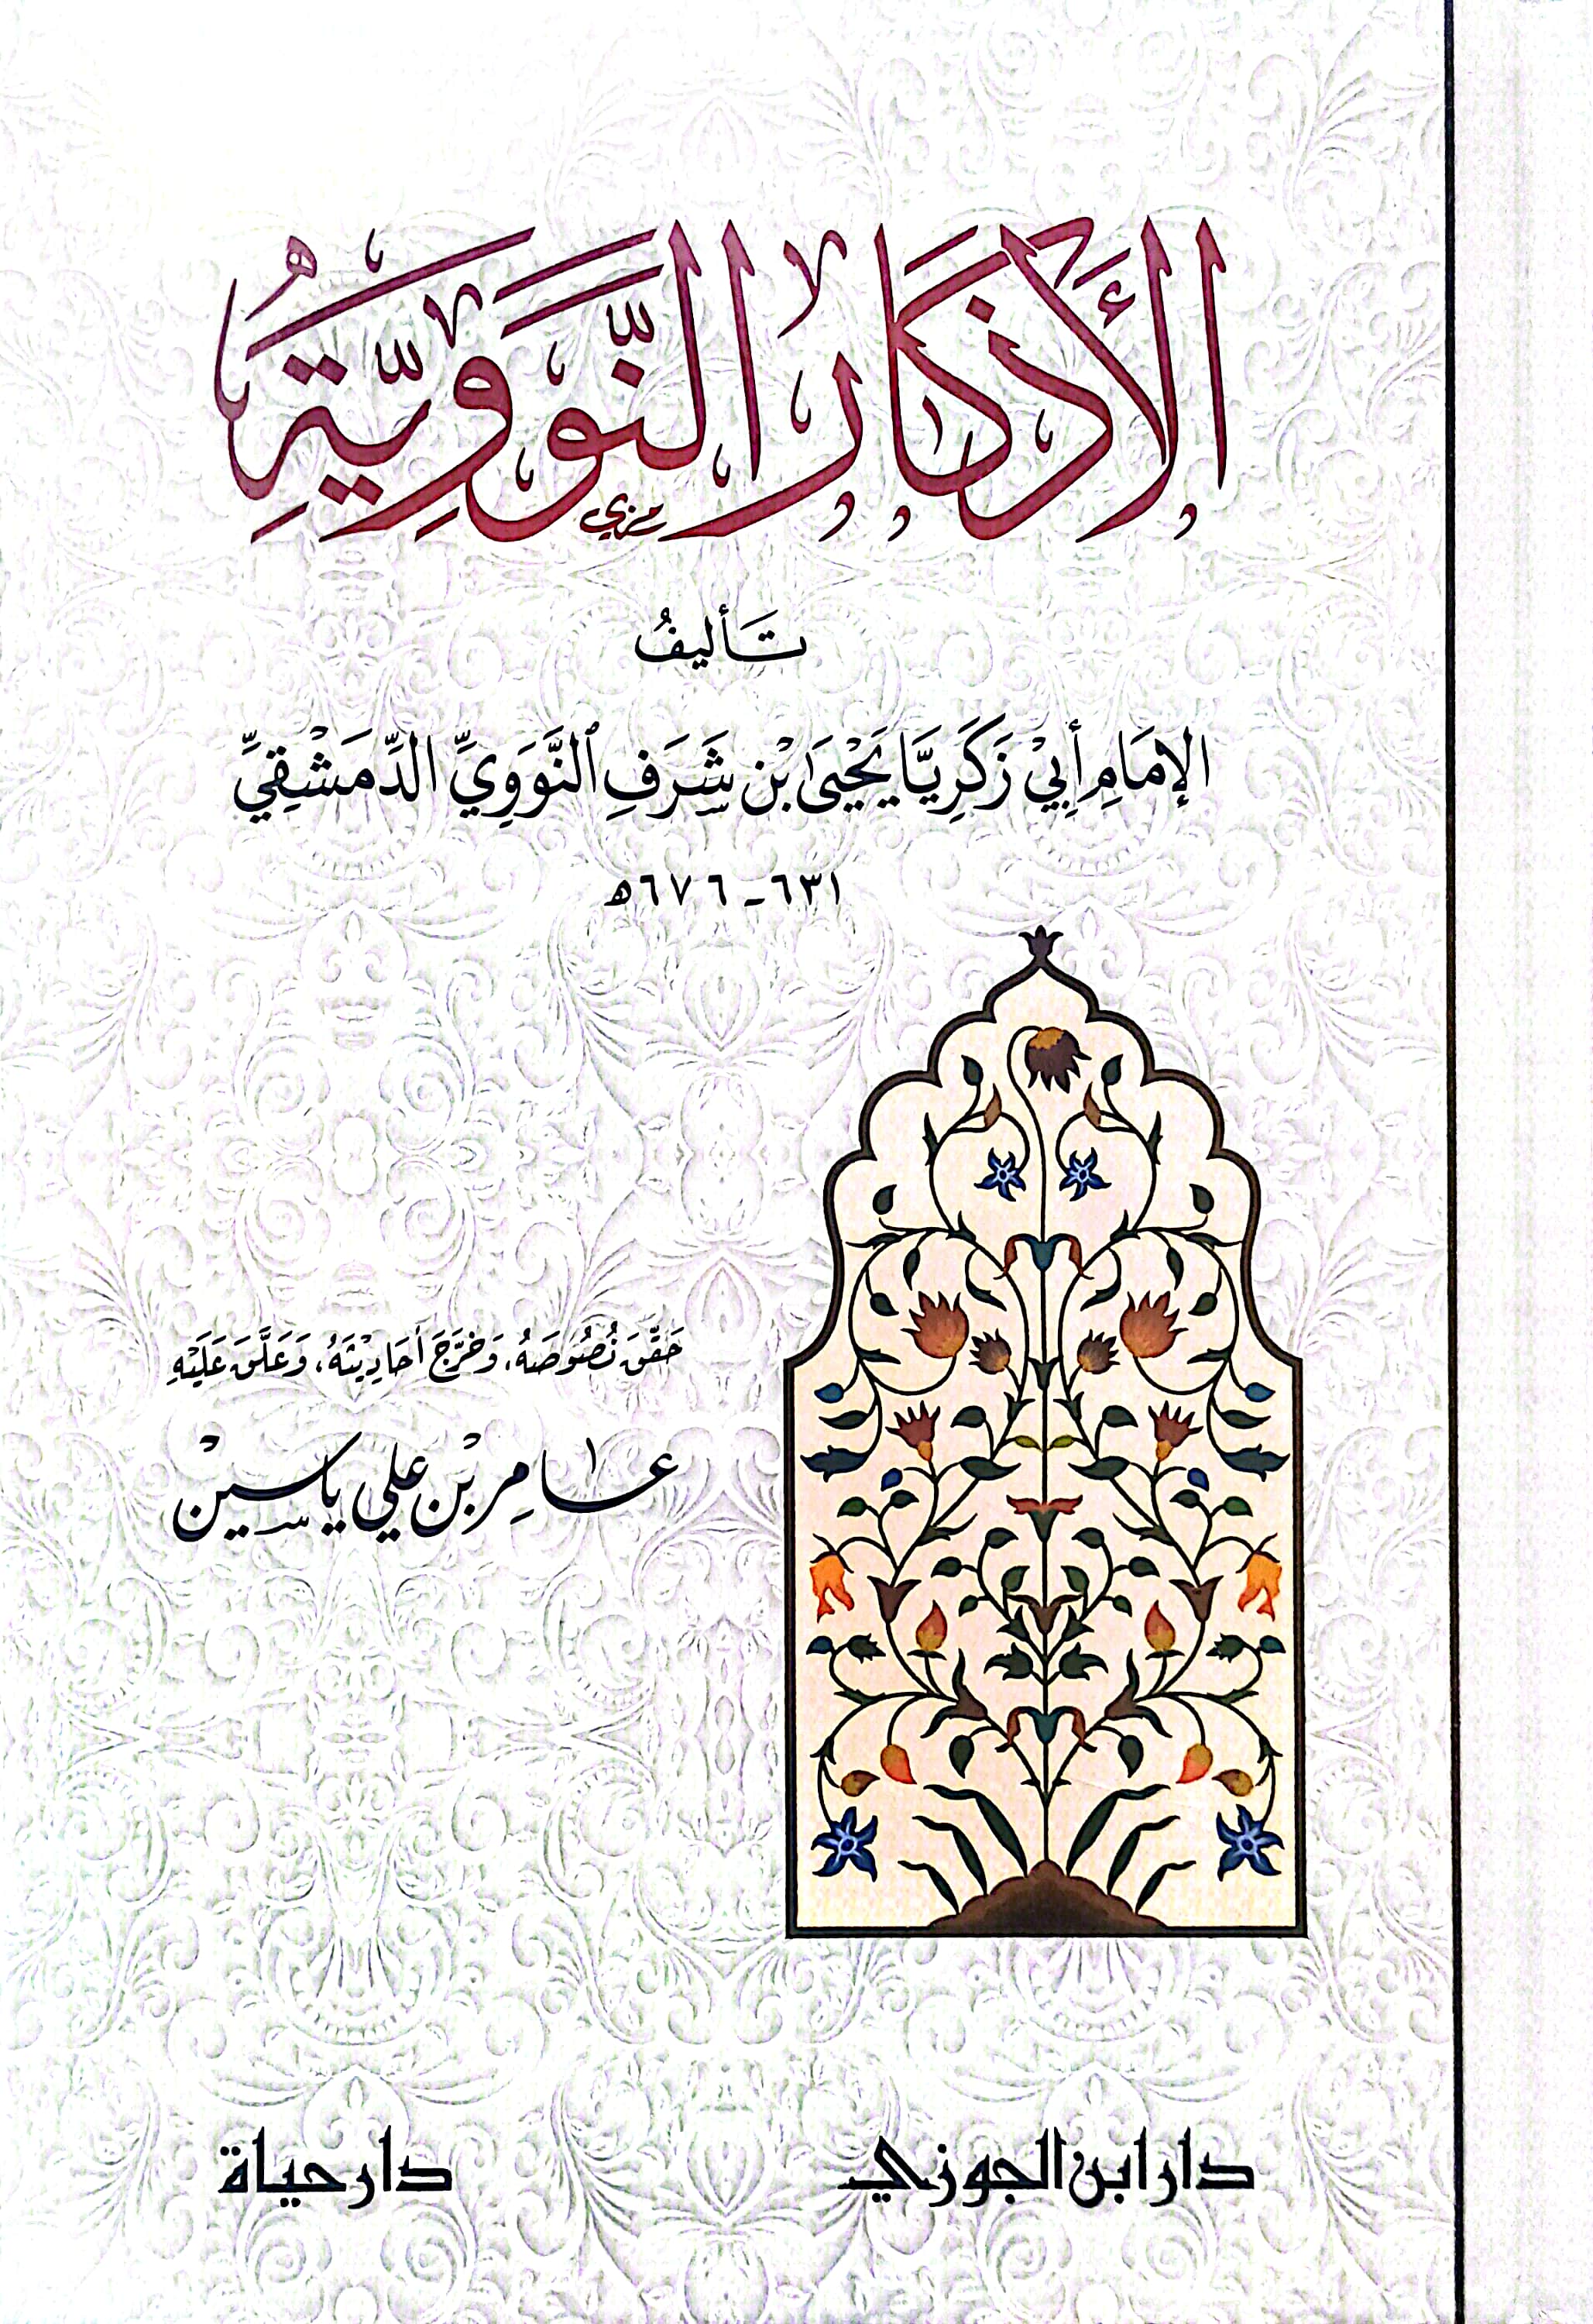 الأَذْكَارُ النَّوَوِيَّةُ
تَأليفُ
الإمَامِ أَبِيْ زَكَرِيَّا يَحْيَىٰ بْن شَرَفِ ٱلنَّوَوِيِّ الدِّمَشْقِيِّ
٦٣١ - ٦٧٦هـ
حَقَّقَ نُصُوصَهُ، وَخَرَّجَ أحَادِيْثَهُ، وَعَلَّقَ عَلَيْهِ
عَامِر بْن علي ياسيْن
دار ابن الجوزي
دار حياة